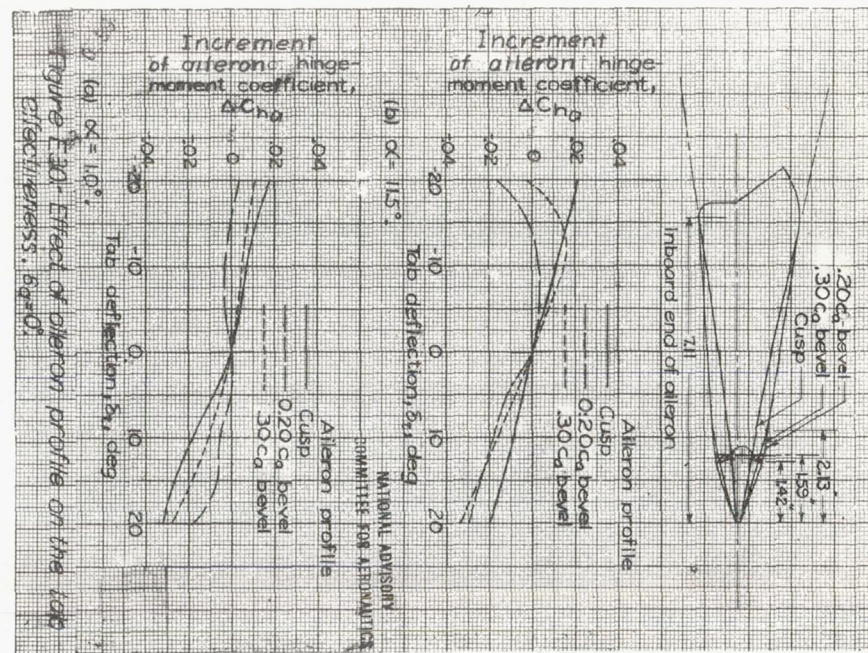 .20cₐ bevel
.30cₐ bevel
Cusp
2.13"
1.59"
1.42"
7.11
Inboard end of aileron
Increment
of aileron hinge-
moment coefficient,
ΔChₐ
.04
.02
0
-.02
-.04
-20
-10
0
10
20
Tab deflection, δₜ, deg
Aileron profile
Cusp
0.20cₐ bevel
.30cₐ bevel
(b) α = 11.5°.
NATIONAL ADVISORY
COMMITTEE FOR AERONAUTICS
Increment
of aileron hinge-
moment coefficient,
ΔChₐ
.04
.02
0
-.02
-.04
-20
-10
0
10
20
Tab deflection, δₜ, deg
Aileron profile
Cusp
0.20cₐ bevel
.30cₐ bevel
(a) α = 1.0°.
Effect of aileron profile on the tab
effectiveness. δₐ=0°.